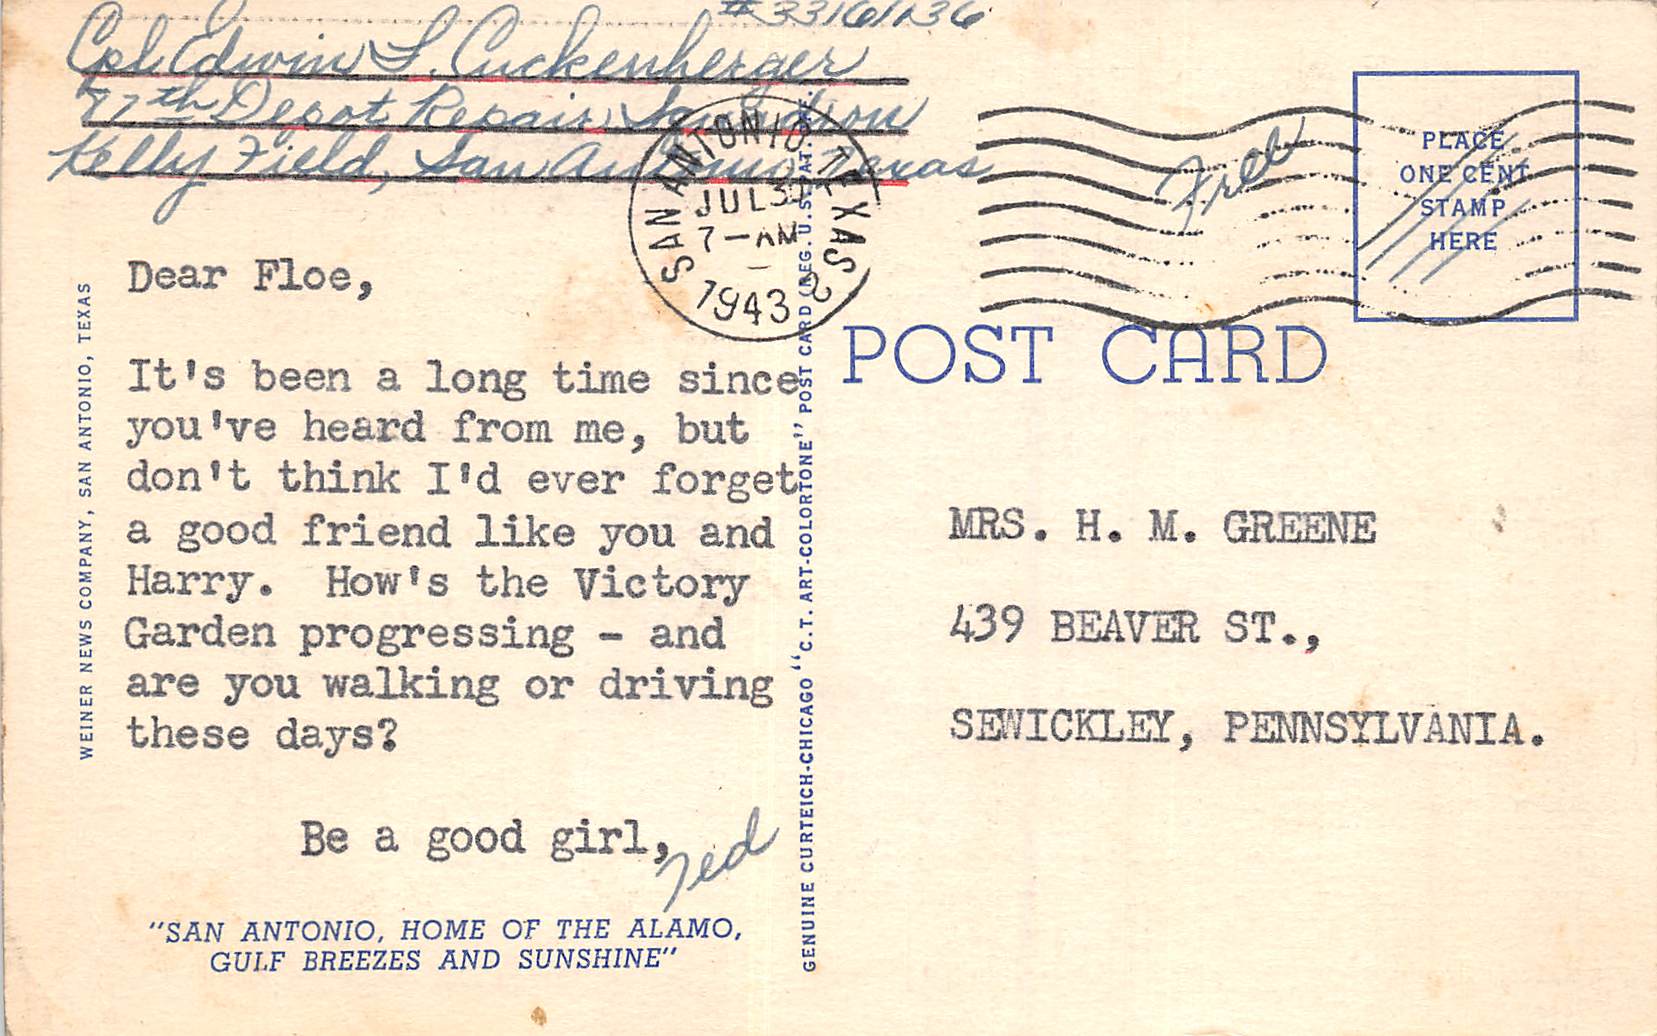 #33161136
Cpl. Edwin L. Cuckenherger
77th Depot Repair Squadron
Kelly Field, San Antonio, Texas
SAN ANTONIO, TEXAS 2
JUL 3
7-AM
1943
Free
PLACE
ONE CENT
STAMP
HERE
POST CARD
Dear Floe,
It's been a long time since
you've heard from me, but
don't think I'd ever forget
a good friend like you and
Harry.  How's the Victory
Garden progressing - and
are you walking or driving
these days?
Be a good girl,
Ted
"SAN ANTONIO, HOME OF THE ALAMO,
GULF BREEZES AND SUNSHINE"
WEINER NEWS COMPANY, SAN ANTONIO, TEXAS
GENUINE CURTEICH-CHICAGO "C.T. ART-COLORTONE" POST CARD (REG. U.S. PAT.
MRS. H. M. GREENE
439 BEAVER ST.,
SEWICKLEY, PENNSYLVANIA.